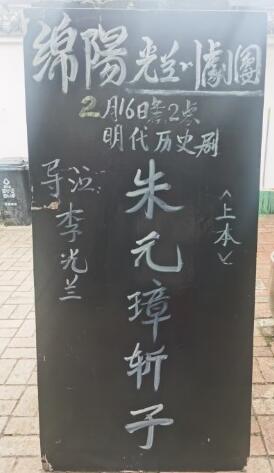 绵陽光兰川劇團
2月16日 2点
明代历史剧
<上本>
朱元璋斩子
导演 李光兰